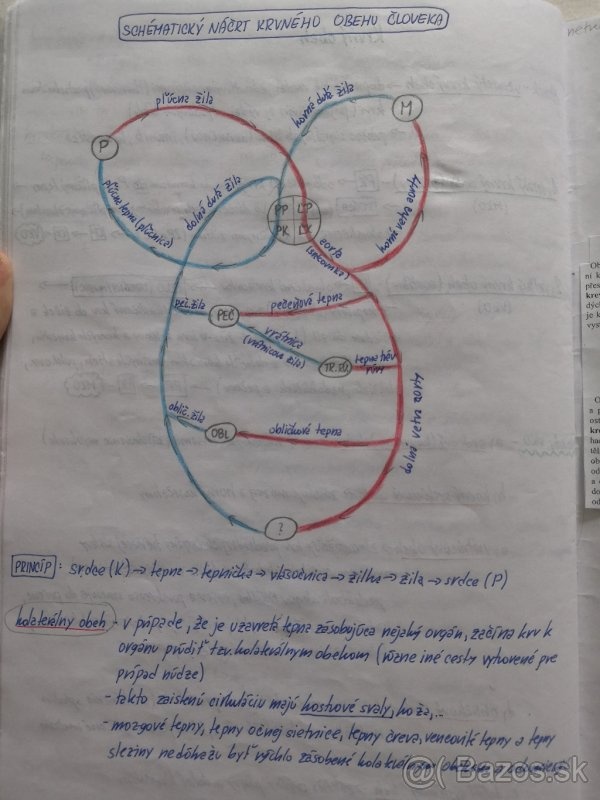 SCHÉMATICKÝ NÁČRT KRVNÉHO OBEHU ČLOVEKA
pľúcna žila
horná dutá žila
M
P
dolná dutá žila
pľúcna tepna (pľúcnica)
PP ĽP
PK ĽK
aorta
(srdcovnica)
horná vetva aorty
peč. žila
PEČ
pečeňová tepna
vrátnica
(vrátnicová žila)
TR. RÚ.
tepna tráv
rúry
dolná vetva aorty
oblič. žila
OBL
obličková tepna
?
PRINCÍP: srdce (K) → tepna → tepnička → vlásočnica → žilka → žila → srdce (P)
kolaterálny obeh - v prípade, že je uzavretá tepna zásobujúca nejaký orgán, začína krv k
orgánu prúdiť tzv. kolaterálnym obehom (rôzne iné cesty vytvorené pre
prípad núdze)
- takto zaistenú cirkuláciu majú kostrové svaly, koža,...
- mozgové tepny, tepny očnej sietnice, tepny čreva, vencovité tepny a tepny
sleziny nedokážu byť rýchlo zásobené
Bazos.sk
Ob
ní k
přes
krev
dýc
je k
vys
O
a p
ost
kre
ha
těl
ob
od
a
do
od